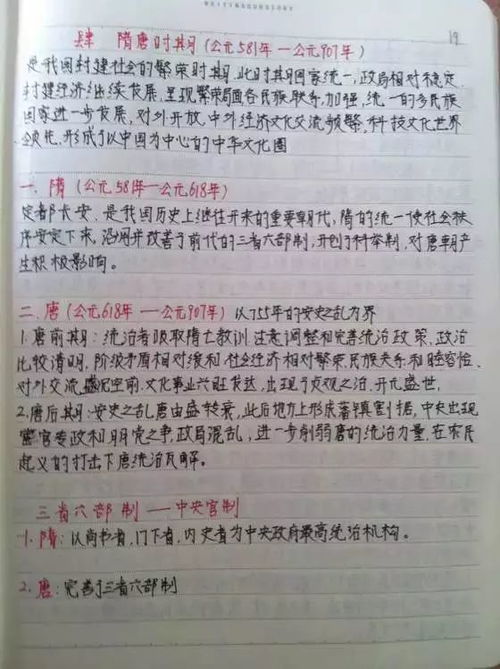 19
肆 隋唐时期(公元581年—公元907年)
是我国封建社会的繁荣时期,此时期国家统一,政局相对稳定,
封建经济继续发展,呈现繁荣局面各民族联系,加强,统一的多民族
国家进一步发展,对外开放,中外经济文化交流频繁,科技文化世界
领先,形成了以中国为中心的中华文化圈
一、隋(公元581年—公元618年)
定都长安,是我国历史上继往开来的重要朝代,隋的统一使社会秩
序安定下来,沿用并改善了前代的三省六部制,开创了科举制,对唐朝产
生积极影响。
二、唐(公元618年—公元907年)以755年的安史之乱为界
1.唐前期:统治者吸取隋亡教训,注意调整和完善统治政策,政治
比较清明,阶级矛盾相对缓和,社会经济相对繁荣,民族关系和睦容恰、
对外交流,盛况空前,文化事业兴旺发达,出现了贞观之治、开元盛世,
2.唐后期:安史之乱唐由盛转衰,此后地方上形成藩镇割据,中央出现
宦官专政和朋党之争,政局混乱,进一步削弱唐的统治力量,在农民
起义的打击下唐统治瓦解。
三省六部制——中央官制
1.隋:以尚书省,门下省,内史省为中央政府最高统治机构。
2.唐:完善了三省六部制